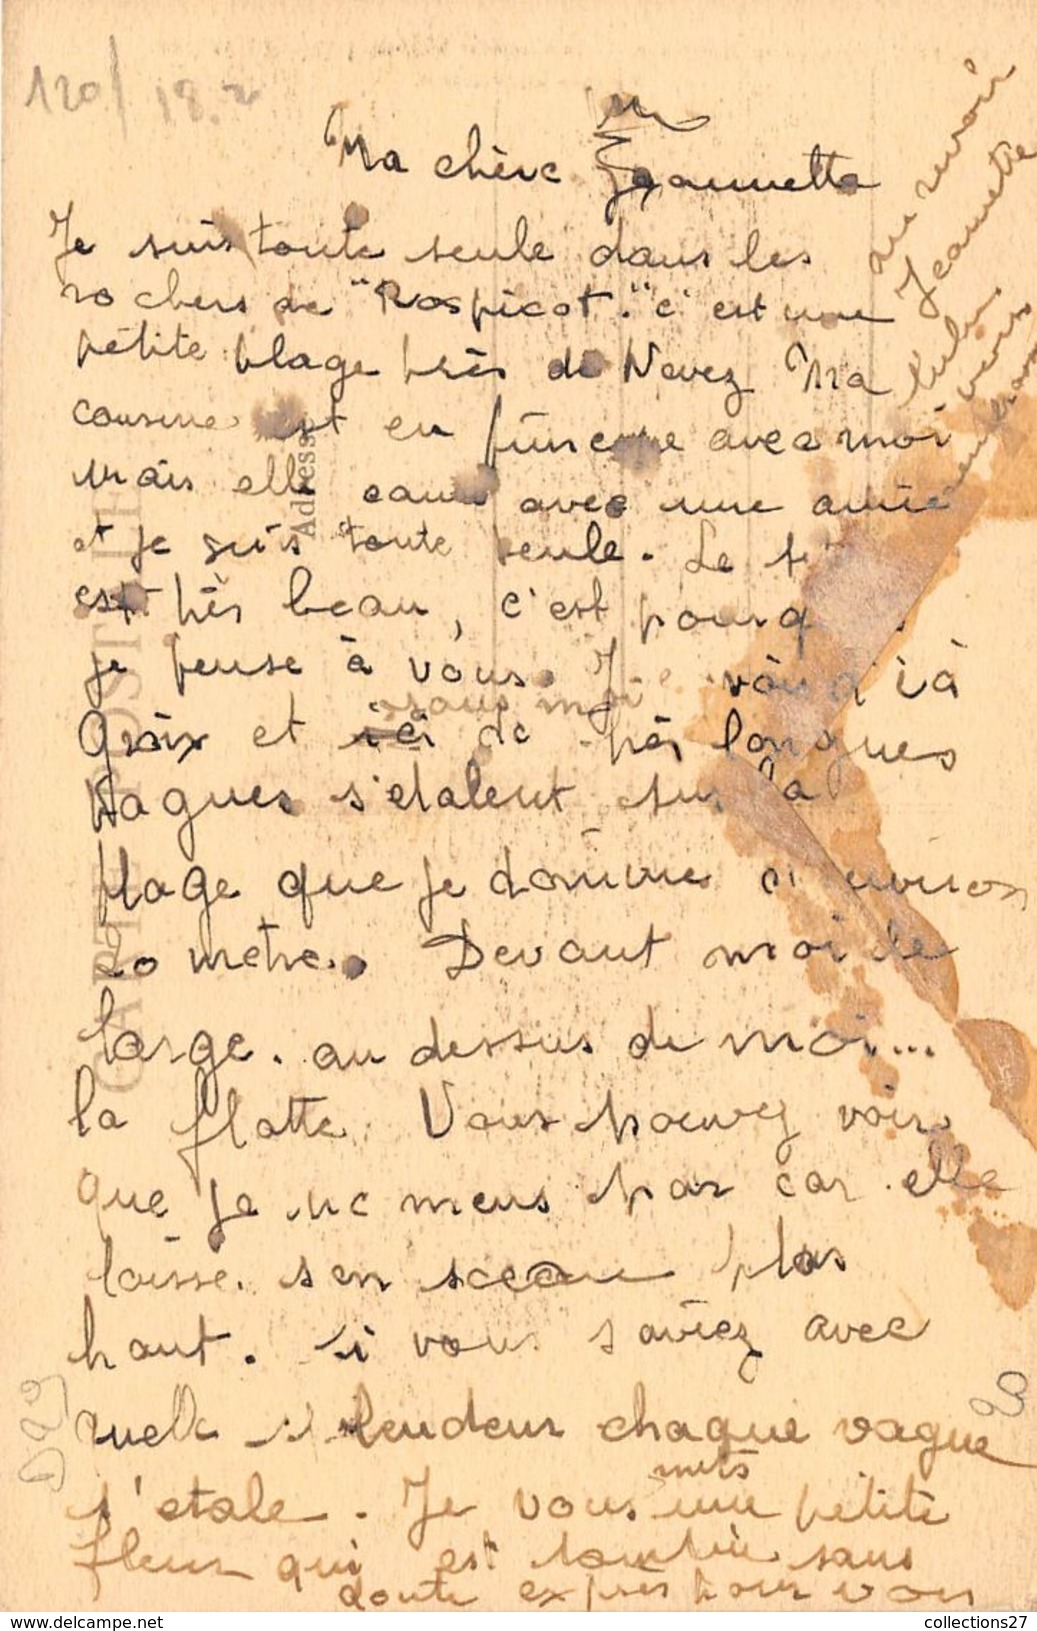 120/ 18.2
Ma chère Jeannette
Je suis toute seule dans les
rochers de "Rospicot." c'est une
pétite plage près de Nevez Ma
cousine est en avec moi
mais elle avec une amie
et je suis toute seule. Le
est très beau, c'est
je pense à vous. Je vois d'ià
Groix et sous moi de très longues
vagues s'etalent sur la
plage que je domine
20 metre. Devant moi le
large. au dessus de moi...
la flotte. Vous pouvez voir
que je ne mens pas car elle
laisse. son plus
haut. Si vous saviez avec
quelle splendeur chaque vague
s'etale. Je vous mets une petite
fleur qui est tombée sans
doute exprès pour vous
au revoir
Jeannette
CARTE POSTALE
Adresse
20
collections27